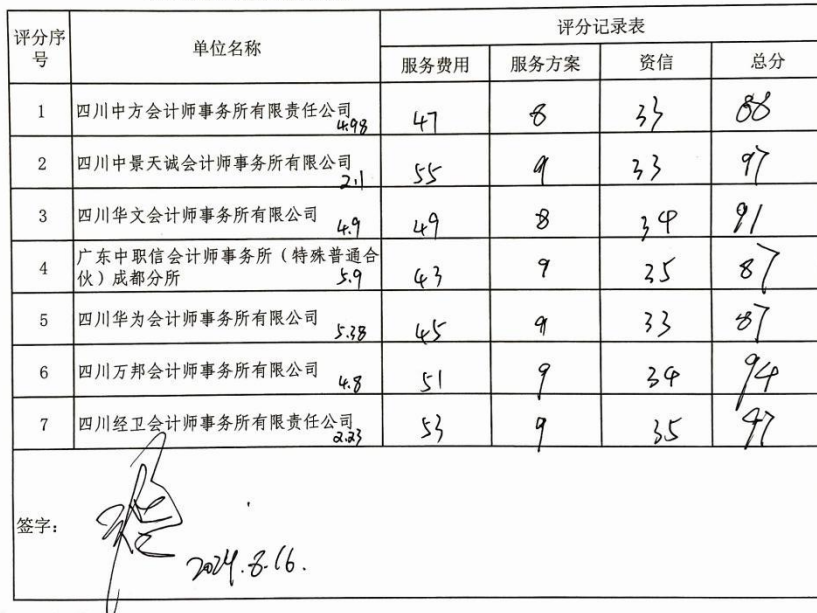 评分序号 单位名称 评分记录表
服务费用 服务方案 资信 总分
1 四川中方会计师事务所有限责任公司 4.98 47 8 33 88
2 四川中景天诚会计师事务所有限公司 2.1 55 9 33 97
3 四川华文会计师事务所有限公司 4.9 49 8 34 91
4 广东中职信会计师事务所（特殊普通合
伙）成都分所 5.9 43 9 35 87
5 四川华为会计师事务所有限公司 5.38 45 9 33 87
6 四川万邦会计师事务所有限公司 4.8 51 9 34 94
7 四川经卫会计师事务所有限责任公司 2.23 53 9 35 97
签字：
2024.8.16.